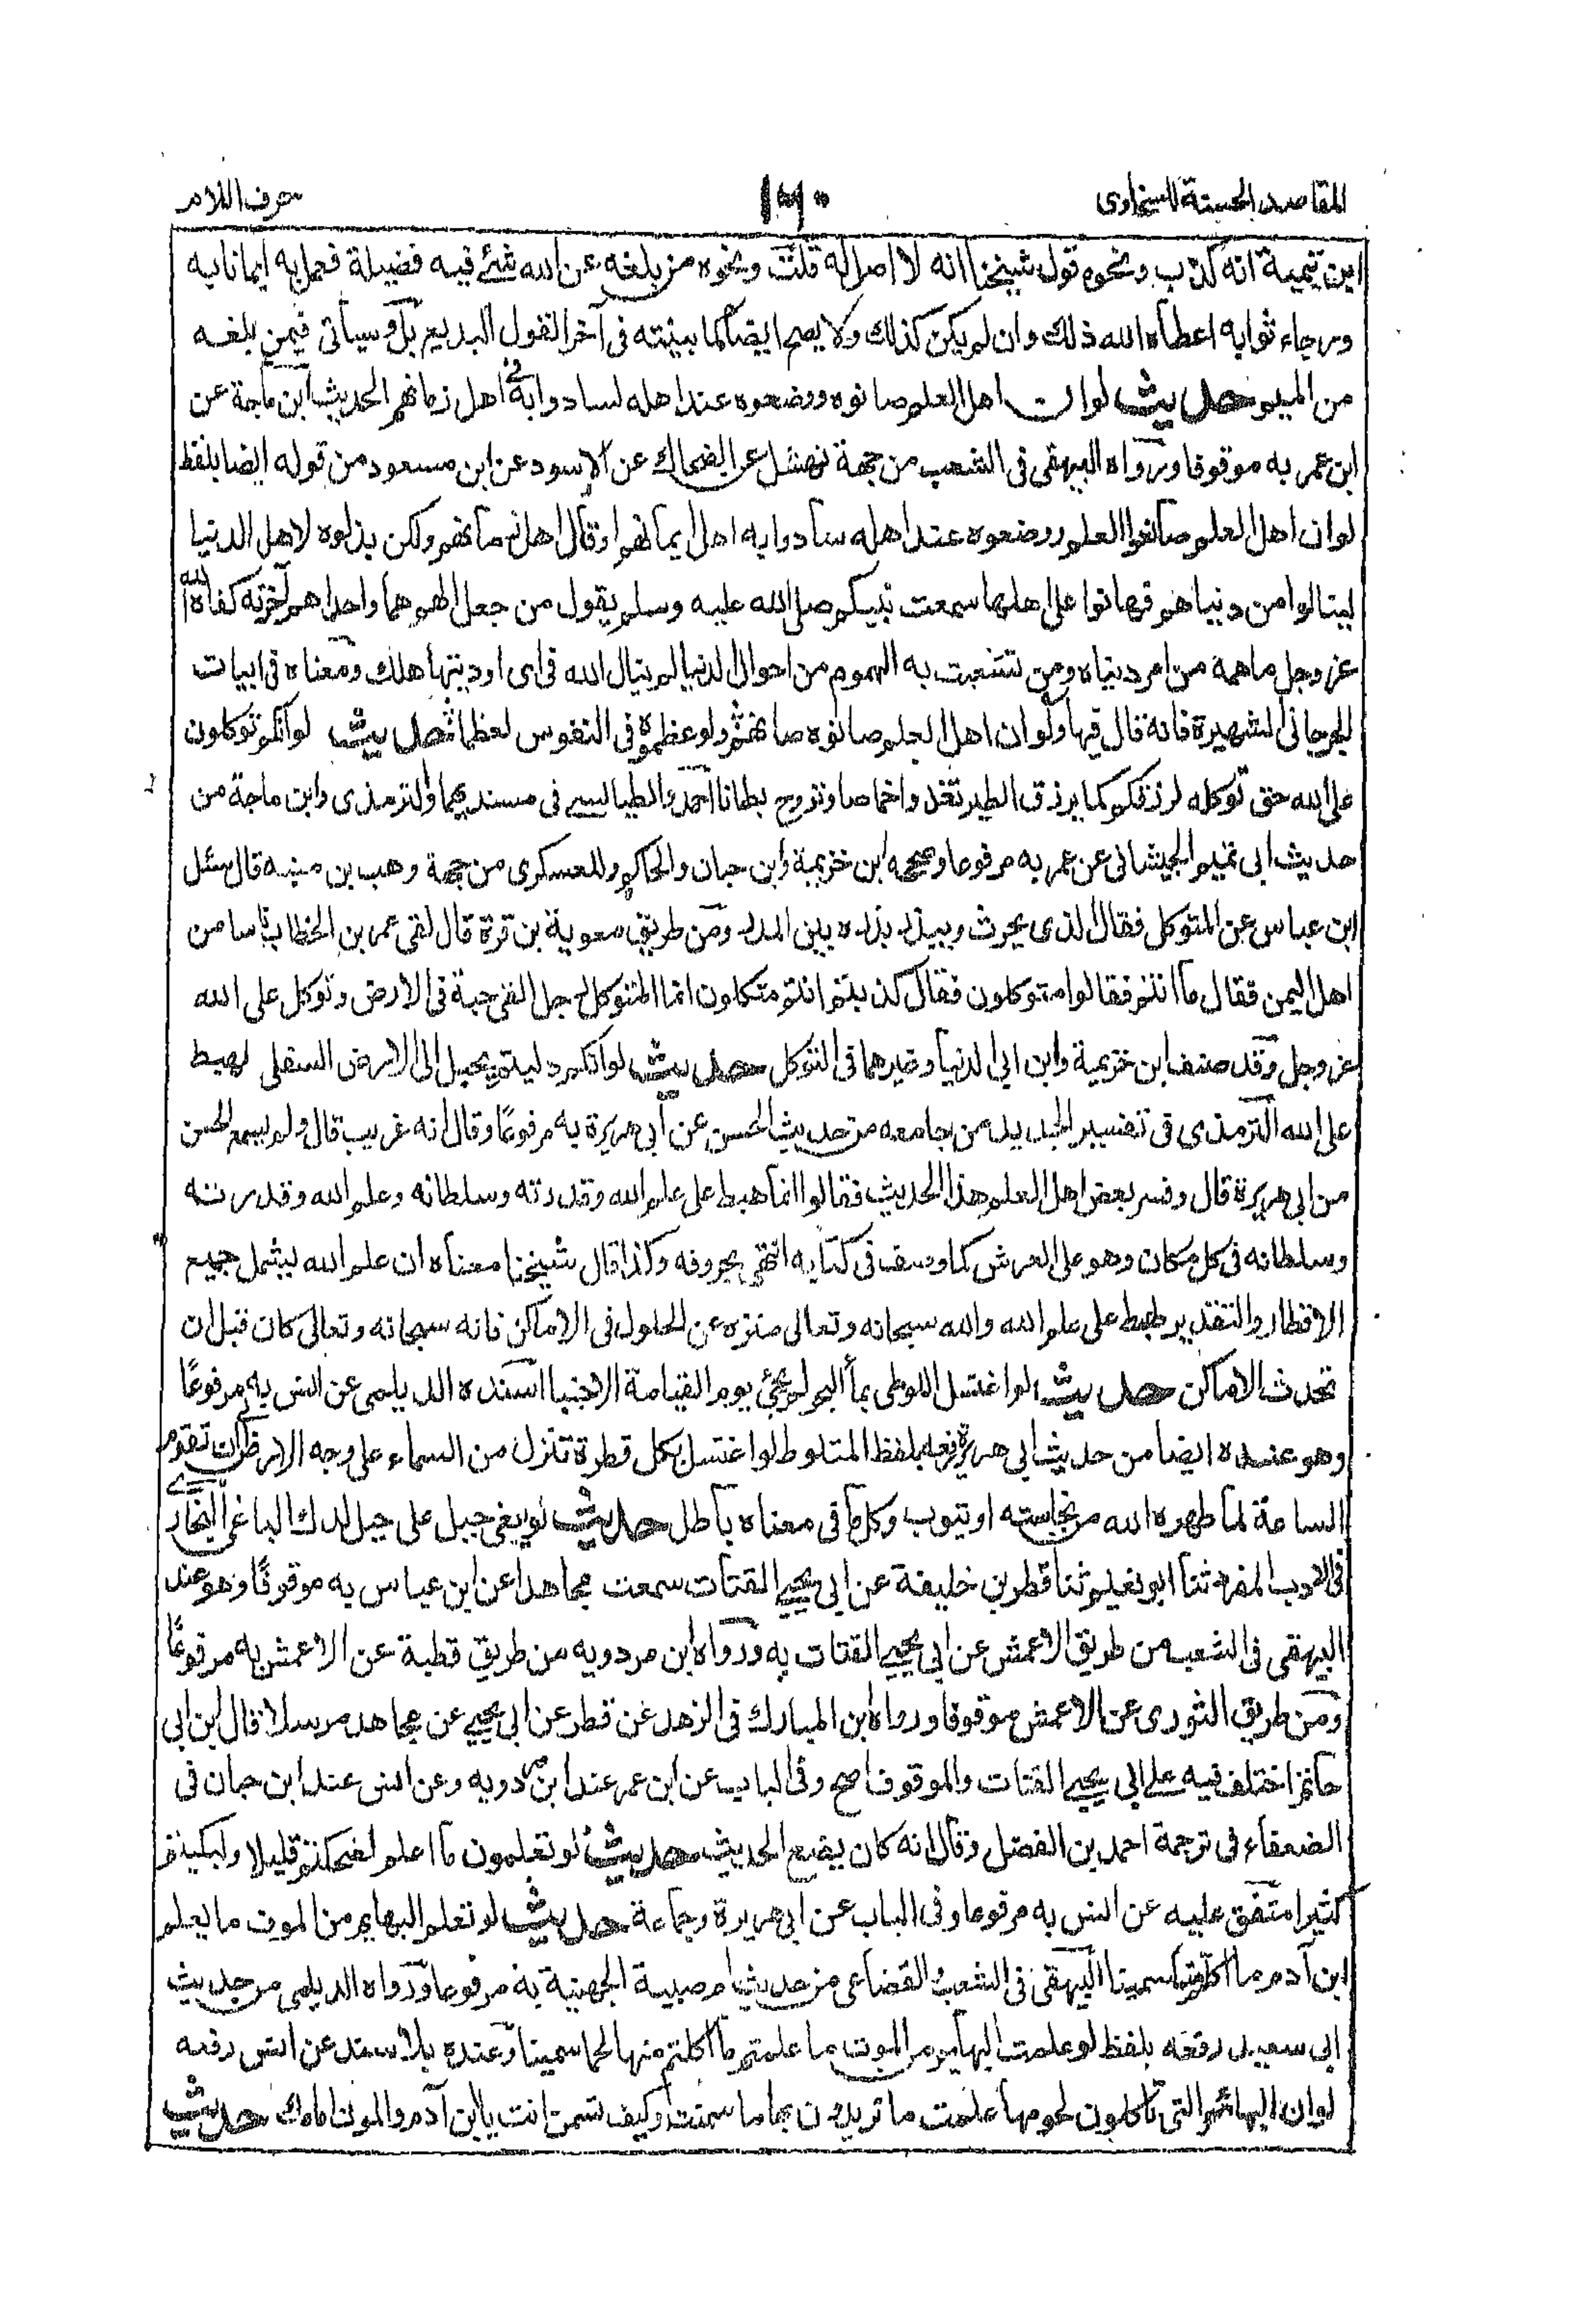 المقاصد الحسنة للسخاوى
حرف اللام
ابن تيمية انه كذب ونحوه قول شيخنا انه لا اصل له قلت ونحوه من بلغه عن الله شئ فيه فضيلة فعمل به ايمانا به
ورجاء ثوابه اعطاه الله ذلك وان لم يكن كذلك ولا يصح ايضا كما بينته فى آخر القول البديع بل وسيأتى فيمن بلغه
من الميم حديث لو ان اهل العلم صانوه ووضعوه عند اهله لسادوا به اهل زمانهم الحديث ابن ماجة عن
ابن عمر به موقوفا ورواه البيهقى فى الشعب من جهة نهشل عن الضحاك عن الاسود عن ابن مسعود من قوله ايضا بلفظ
لو ان اهل العلم صانوا العلم ووضعوه عند اهله سادوا به اهل ايمانهم او قال اهل زمانهم ولكن بذلوه لاهل الدنيا
لينالوا من دنياهم فهانوا على اهلها سمعت نبيكم صلى الله عليه وسلم يقول من جعل الهم هما واحدا هم آخرته كفاه الله
عز وجل ما همه من امر دنياه ومن تشعبت به الهموم من احوال الدنيا لم ينال الله فى اى اوديتها هلك ومعناه فى ابيات
للجرجانى الشهيرة فانه قال فيها ولو ان اهل العلم صانوه صانهم ولو عظموه فى النفوس لعظما حديث لو انكم توكلون
على الله حق توكله لرزقكم كما يرزق الطير تغدوا خماصا وتروح بطانا احمد والطيالسى فى مسنديهما والترمذى وابن ماجة من
حديث ابى تميم الجيشانى عن عمر به مرفوعا وصححه ابن خزيمة وابن حبان والحاكم وللعسكرى من جهة وهب بن منبه قال سئل
ابن عباس عن المتوكل فقال الذى يحرث ويبذر بذره بين المدر ومن طريق معوية بن قرة قال لقى عمر بن الخطاب ناسا من
اهل اليمن فقال ما انتم فقالوا متوكلون فقال كذبتم انتم متكلون انما المتوكل رجل القى حبة فى الارض وتوكل على الله
عز وجل وقد صنف ابن خزيمة وابن ابى الدنيا وغيرهما فى التوكل حديث لو انكم دليتم بحبل الى الارض السفلى لهبط
على الله الترمذى فى تفسير الحديد من جامعه من حديث الحسن عن ابى هريرة به مرفوعا وقال انه غريب قال ولم يسمع الحسن
من ابى هريرة قال وفسر بعض اهل العلم هذا الحديث فقالوا انما هبط على علم الله وقدرته وسلطانه وعلم الله وقدرته
وسلطانه فى كل مكان وهو على العرش كما وصف فى كتابه انتهى بحروفه وكذا قال شيخنا معناه ان علم الله يشمل جميع
الاقطار والتقدير لهبط على علم الله والله سبحانه وتعالى منزه عن الحلول فى الاماكن فانه سبحانه وتعالى كان قبل ان
تحدث الاماكن حديث لو اغتسل اللوطى بماء البحر لم يجئ يوم القيامة الا جنبا اسنده الديلمى عن انس به مرفوعا
وهو عنده ايضا من حديث ابى هريرة رفعه بلفظ المتلوط لو اغتسل بكل قطرة تنزل من السماء على وجه الارض الى ان تقوم
الساعة لما طهره الله من نجاسته او يتوب وكل ما فى معناه باطل حديث لو بغى جبل على جبل لدك الباغى البخارى
فى الادب المفرد ثنا ابو نعيم ثنا فطر بن خليفة عن ابى يحيى القتات سمعت مجاهدا عن ابن عباس به موقوفا وهو عند
البيهقى فى الشعب من طريق الاعمش عن ابى يحيى القتات به ورواه ابن مردويه من طريق قطبة عن الاعمش به مرفوعا
ومن طريق الثورى عن الاعمش موقوفا ورواه ابن المبارك فى الزهد عن فطر عن ابى يحيى عن مجاهد مرسلا قال ابن ابى
حاتم اختلف فيه على ابى يحيى القتات والموقوف اصح وفى الباب عن ابن عمر عند ابن مردويه وعن انس عند ابن حبان فى
الضعفاء فى ترجمة احمد بن الفضل وقال انه كان يضع الحديث حديث لو تعلمون ما اعلم لضحكتم قليلا ولبكيتم
كثيرا متفق عليه عن انس به مرفوعا وفى الباب عن ابى هريرة وجماعة حديث لو تعلم البهايم من الموت ما يعلم
ابن آدم ما اكلتم سمينا البيهقى فى الشعب والقضاعى من حديث ام صبية الجهنية به مرفوعا ورواه الديلمى من حديث
ابى سعيد رفعه بلفظ لو علمت البهايم من الموت ما علمتم ما اكلتم منها لحما سمينا وعنده بلا سند عن انس رفعه
لو ان البهائم التى تأكلون لحومها علمت ما تريدون بها ما سمنت وكيف تسمن انت يا ابن آدم والموت امامك حديث